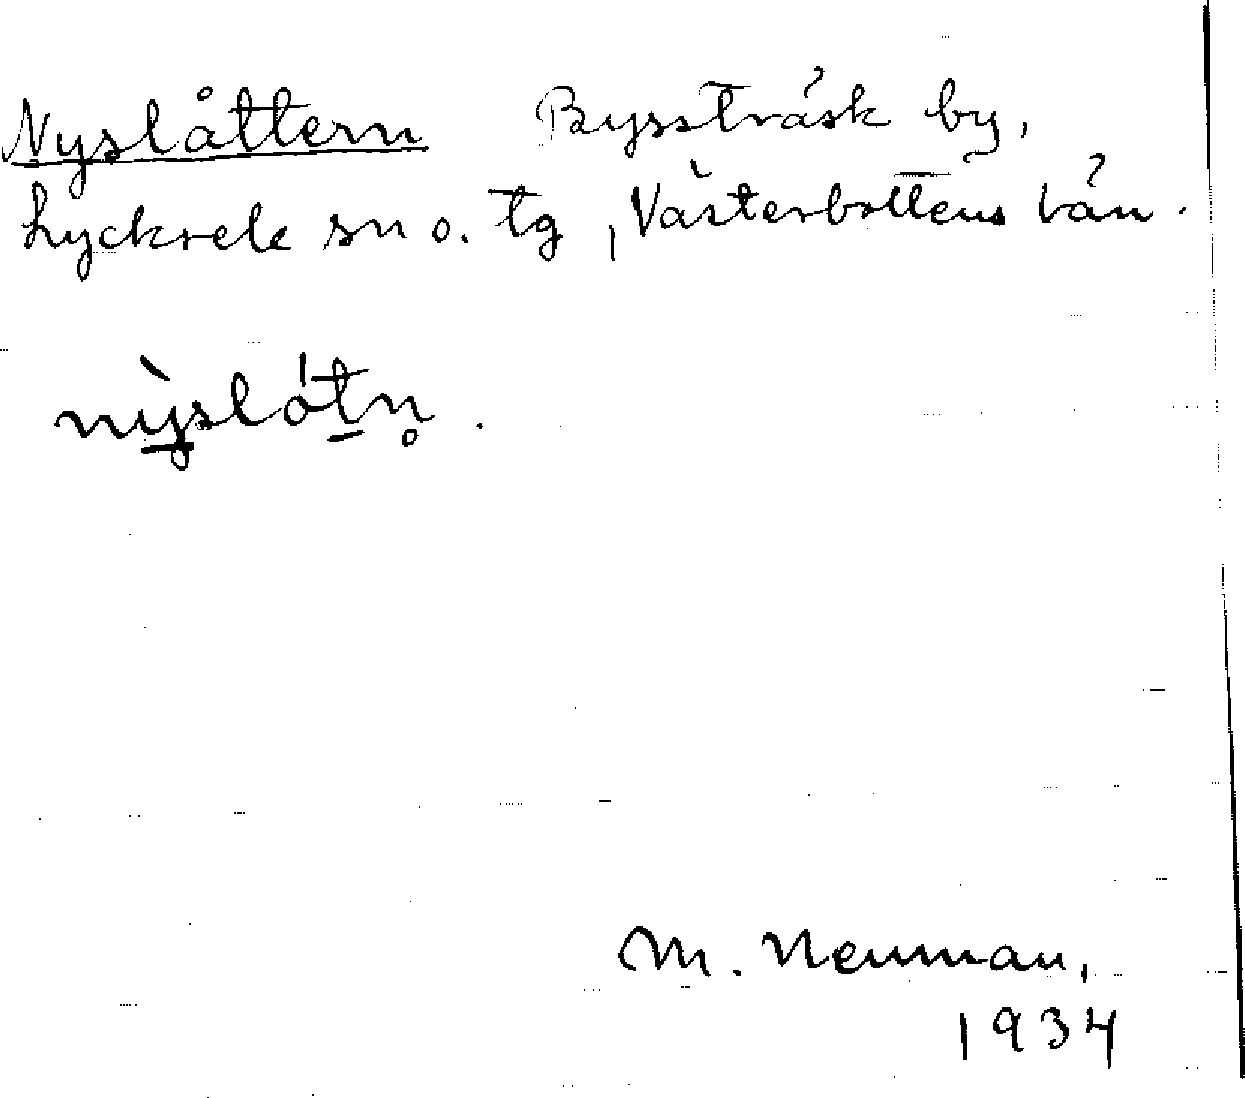 Nyslåttern Bysträsk by,
Lycksele sn o. tg, Västerbottens län.
nỳslótn̥.
M. Neuman,
1934